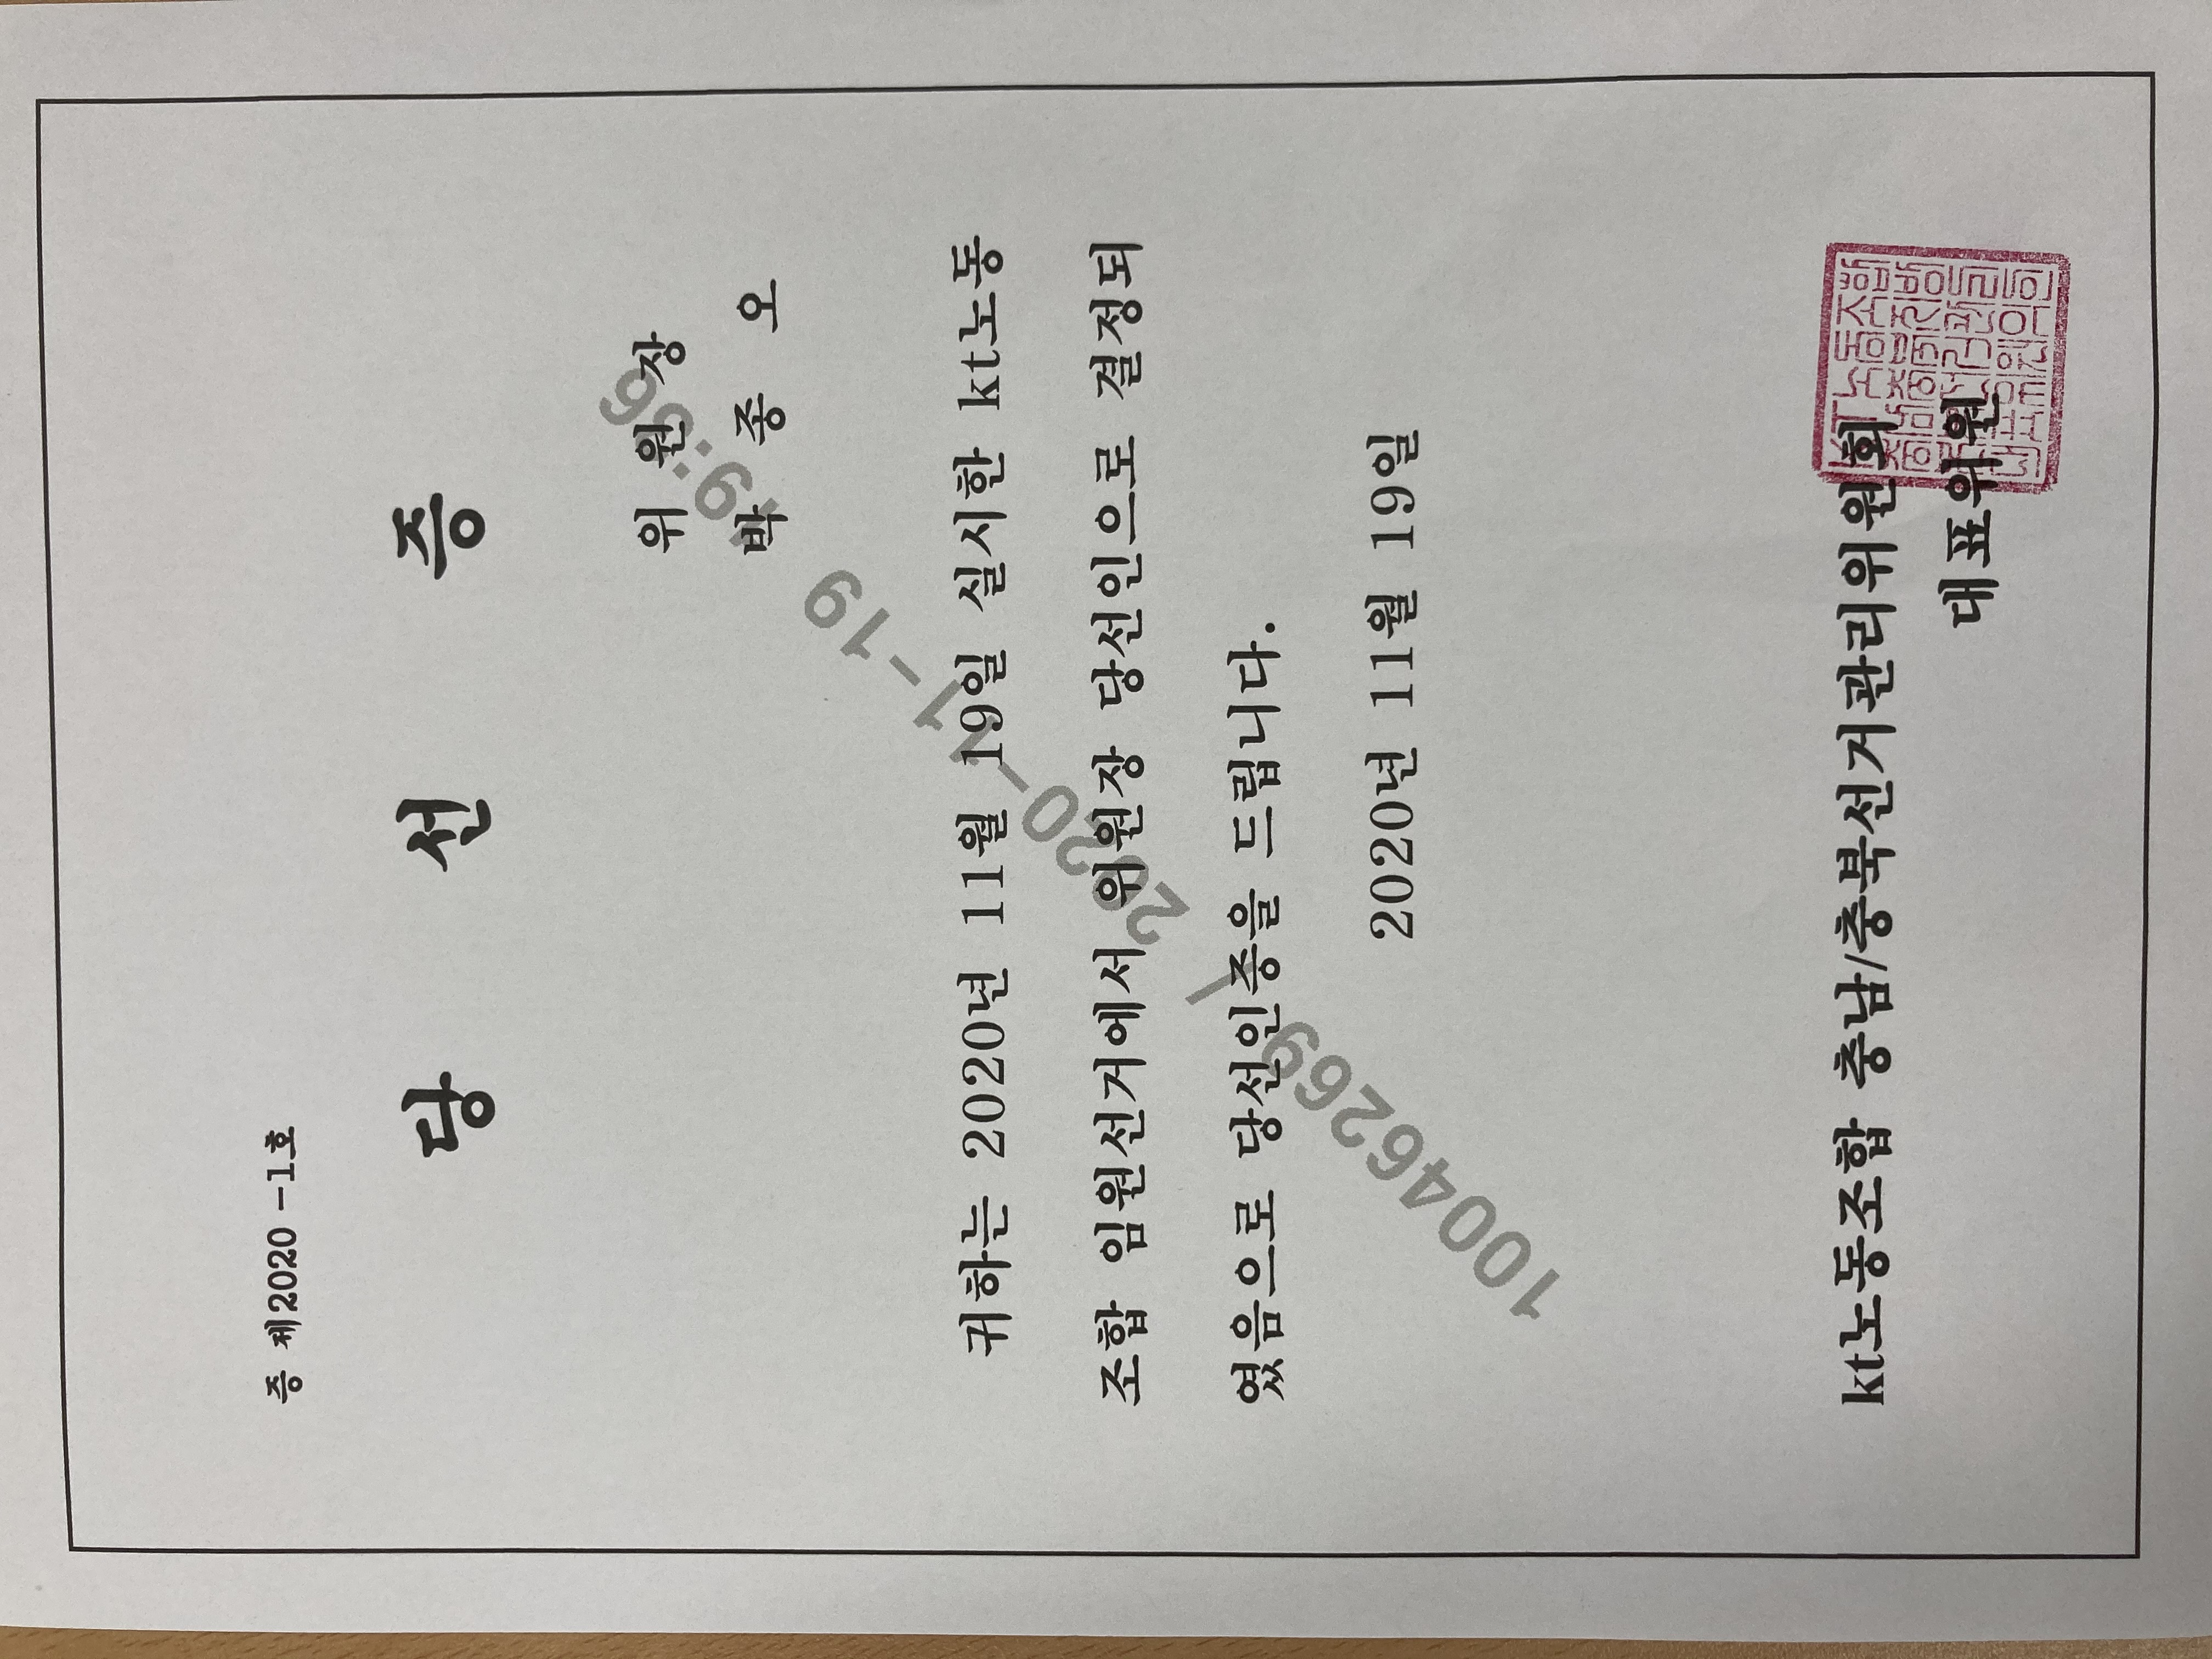 증 제2020 -1호
당 선 증
위 원 장
박 종 오
귀하는 2020년 11월 19일 실시한 kt노동
조합 임원선거에서 위원장 당선인으로 결정되
였음으로 당선인증을 드립니다.
2020년 11월 19일
kt노동조합 충남/충북선거관리위원회
대표위원
10046269 / 2020-11-19 19:36